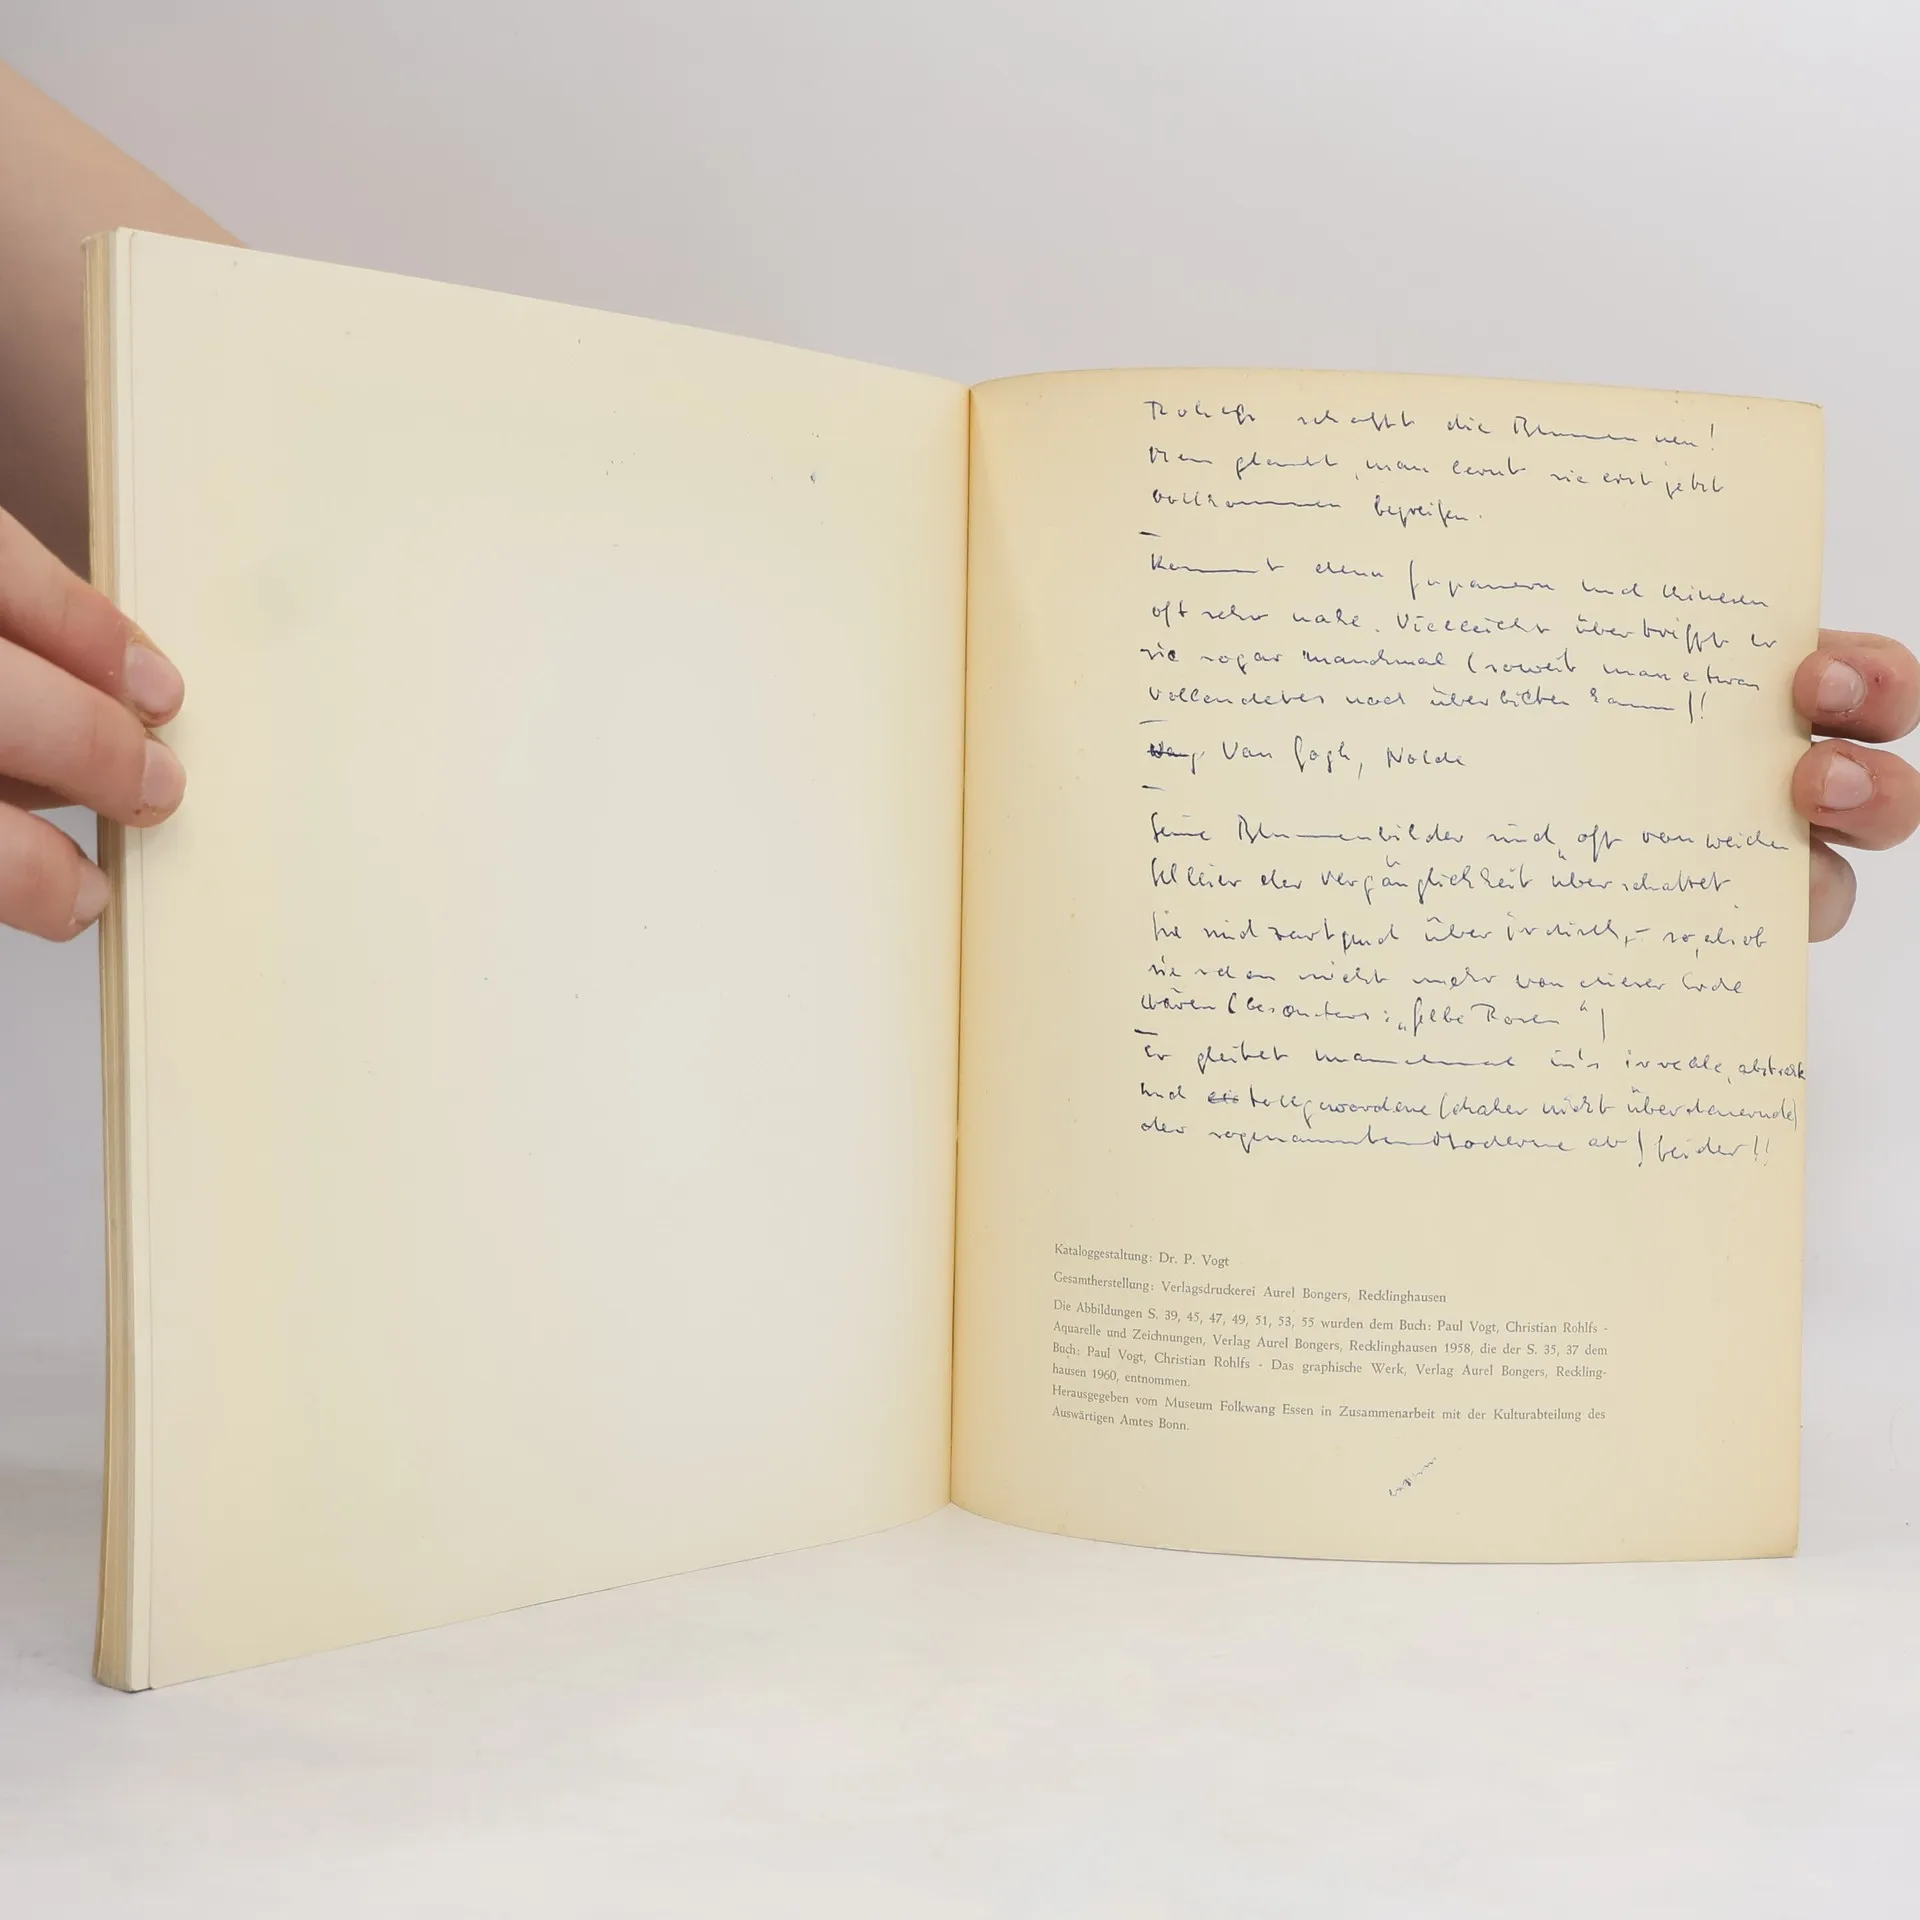 Rohlfs schafft die Blumen neu!
Man glaubt, man lernt sie erst jetzt
vollkommen begreifen.
—
Kommt denn Japanern und Chinesen
oft sehr nahe. Vielleicht übertrifft er
sie sogar manchmal (soweit man etwas
vollendetes noch überbieten kann)!
—
Van Gogh, Nolde
—
Seine Blumenbilder sind oft von weichen
Schleier der Vergänglichkeit überschattet
Sie sind zart und überirdisch, – so, als ob
sie schon nicht mehr von dieser Erde
wären (besonders: „Gelbe Rosen“)
—
Er gleitet manchmal in's irreale, abstrakte
und tollgewordene (daher nicht überdauernde)
der sogenannten Moderne ab! Leider!!
Kataloggestaltung: Dr. P. Vogt
Gesamtherstellung: Verlagsdruckerei Aurel Bongers, Recklinghausen
Die Abbildungen S. 39, 45, 47, 49, 51, 53, 55 wurden dem Buch: Paul Vogt, Christian Rohlfs -
Aquarelle und Zeichnungen, Verlag Aurel Bongers, Recklinghausen 1958, die der S. 35, 37 dem
Buch: Paul Vogt, Christian Rohlfs - Das graphische Werk, Verlag Aurel Bongers, Reckling-
hausen 1960, entnommen.
Herausgegeben vom Museum Folkwang Essen in Zusammenarbeit mit der Kulturabteilung des
Auswärtigen Amtes Bonn.